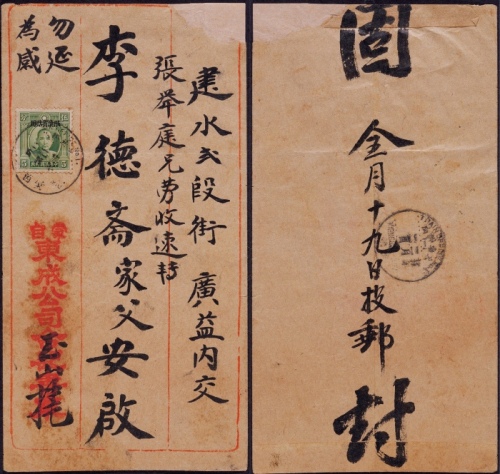 建水北段街 廣益内交
張舉庭兄勞收速轉
李德斎家父安啟
勿延
為感
自雲
東成公司
玉山托
固
仝月十九日投郵
封